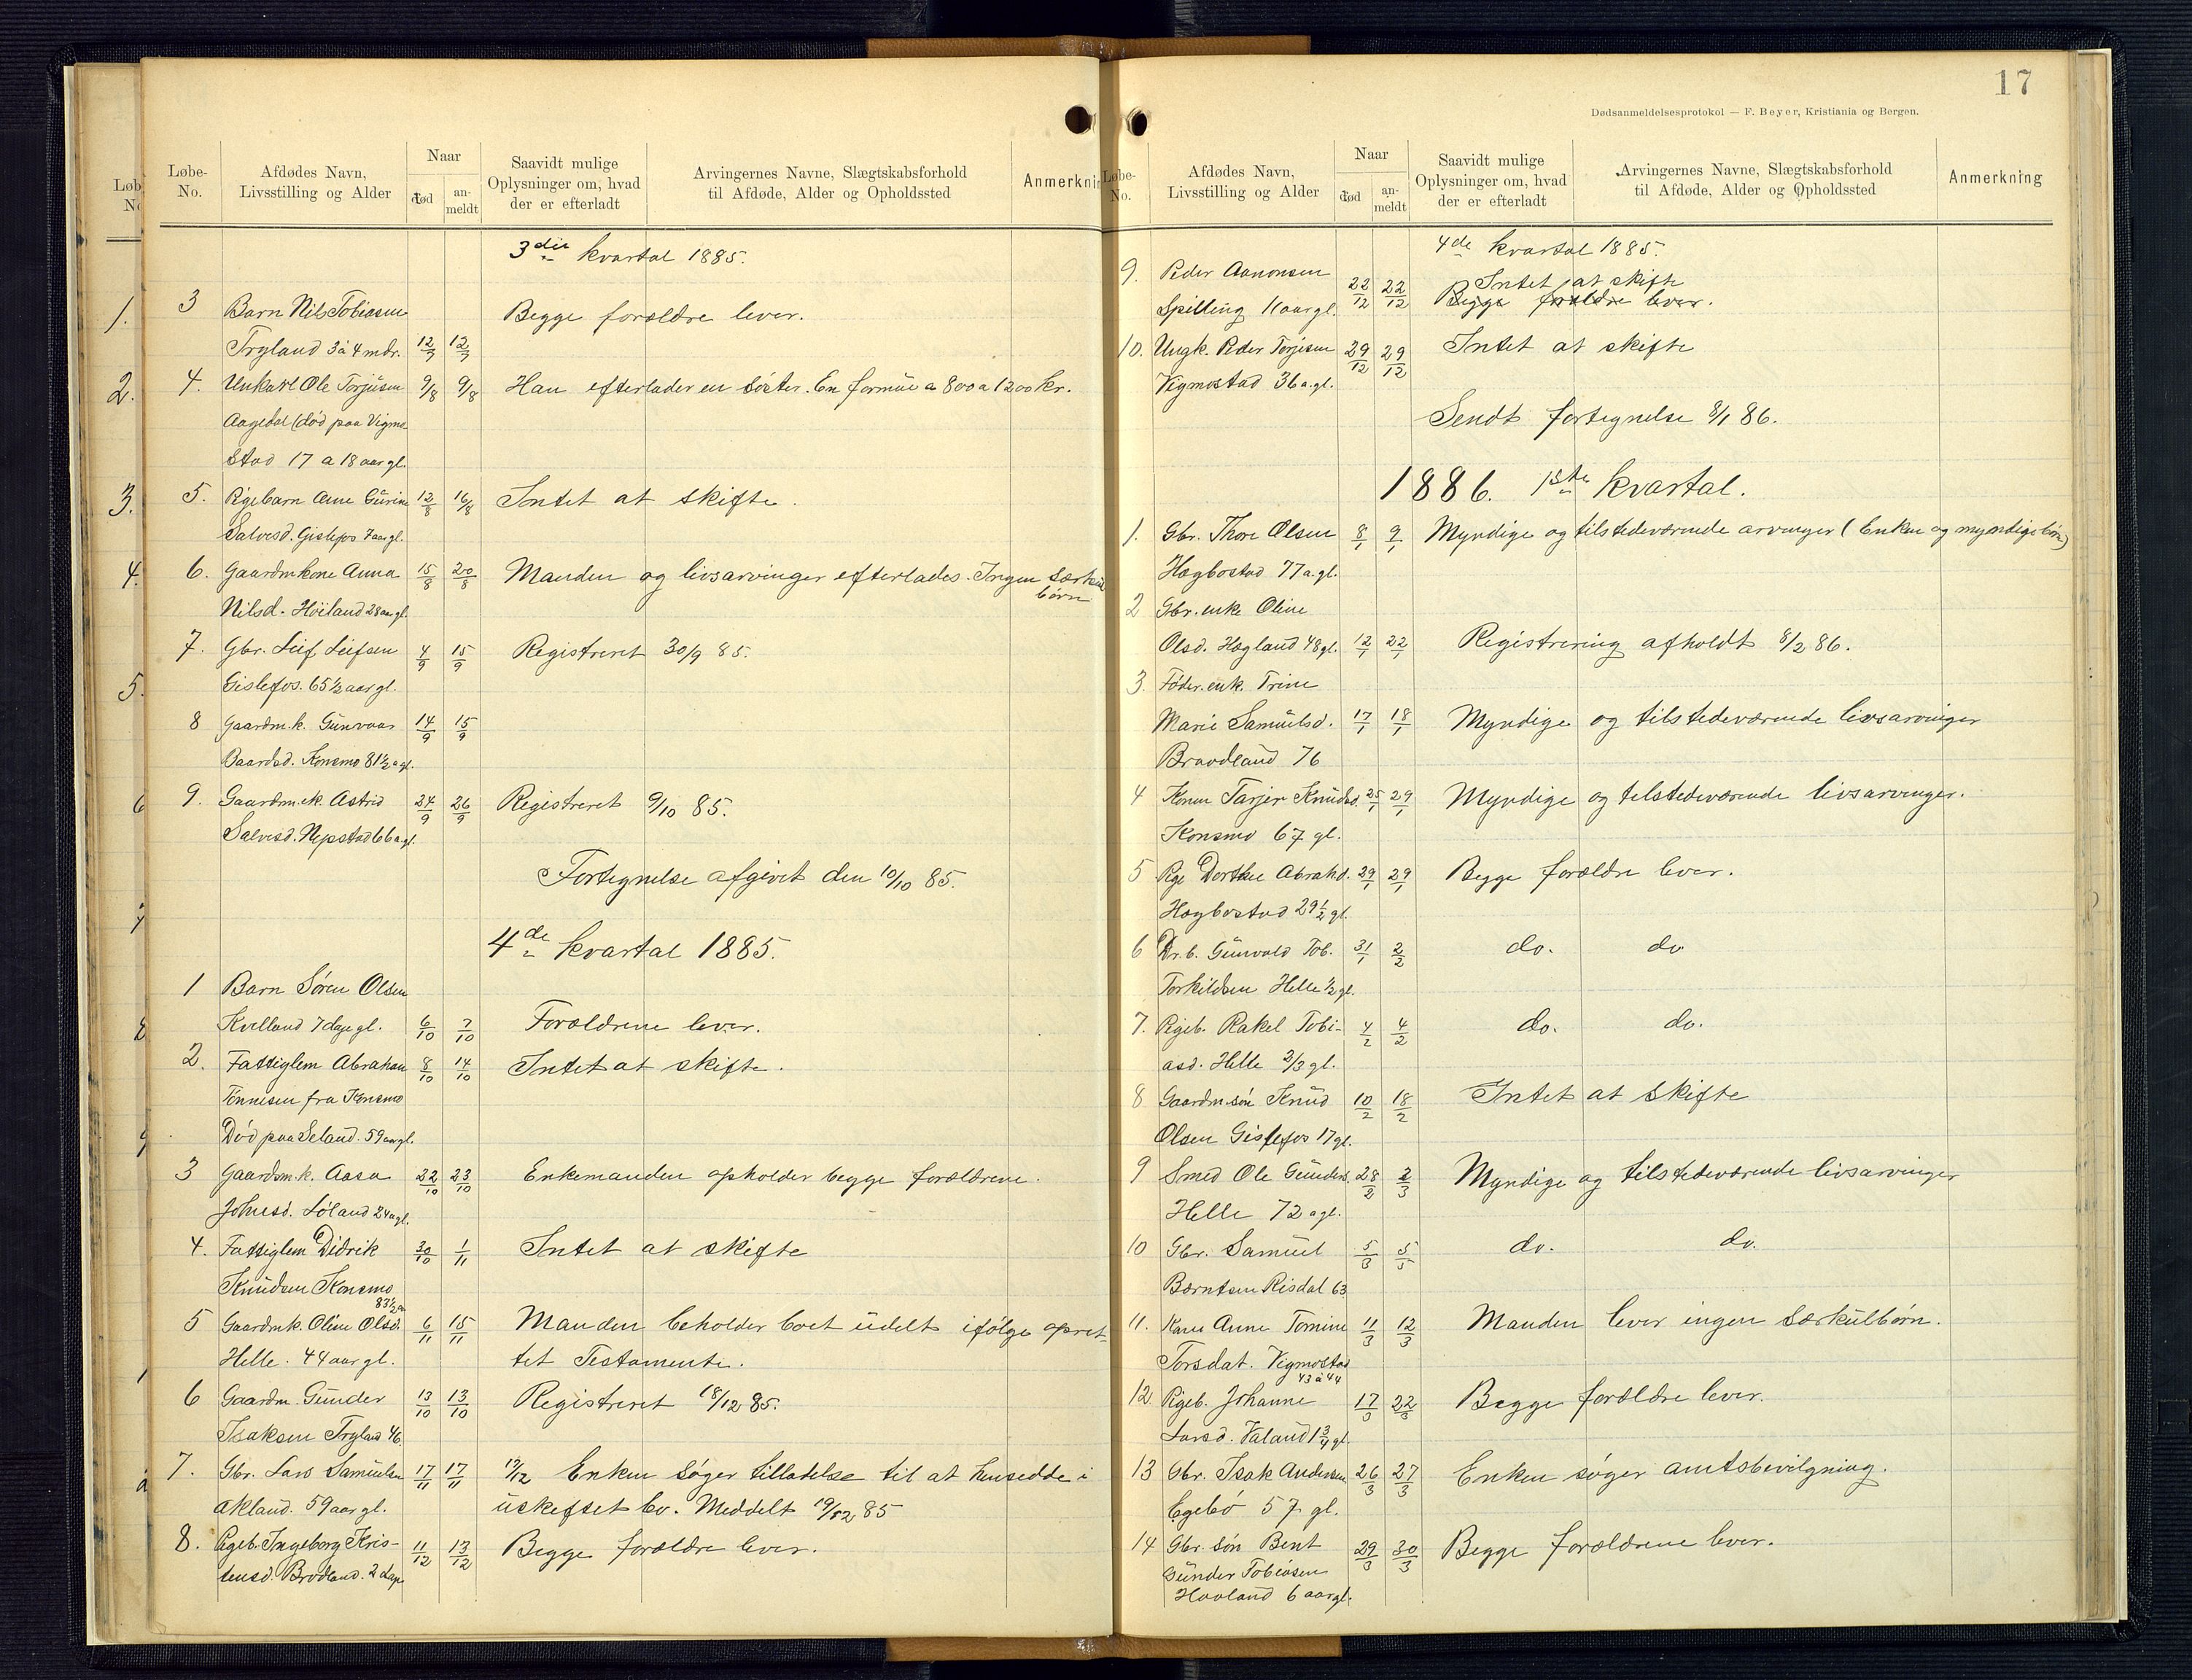 Løbe-
No.
Afdødes Navn,
Livsstilling og Alder
Naar
død
an-
meldt
Saavidt mulige
Oplysninger om, hvad
der er efterladt
Arvingernes Navne, Slægtskabsforhold
til Afdøde, Alder og Opholdssted
Anmerkni
3die kvartal 1885.
3 Barn Nils Tobiasen Begge forældre lever.
Tryland 3 à 4 mdr. 12/9 12/9
4. Unkarl Ole Torjusen 9/8 9/8 Han efterlader en søster. En formue a 800 a 1200 kr.
Aagedal (død paa Vigmo
stad 17 a 18 aar gl.
5. Pigebarn Anne Gurine 12/8 16/8 Intet at skifte.
Salvesd. Gislefos 7 aar gl.
6. Gaardmkone Anna 15/8 20/8 Manden og livsarvinger efterlades. Ingen særkul
børn
Nilsd. Høiland 28 aar gl.
7. Gbr. Leif Leifsen 4/9 15/9 Registreret 30/9 85.
Gislefos. 65 1/2 aar gl.
8 Gaardm.k. Gunvaar 14/9 15/9
Baardsd. Konsmo 81 1/2 a gl.
9. Gaardm.ek. Astrid 24/9 26/9 Registreret 9/10 85.
Salvesd. Nepstad 66 a gl.
Fortegnelse afgivet den 10/10 85.
4de kvartal 1885.
1 Barn Søren Olsen
Kvelland 7 dage gl. 6/10 7/10 Forældrene lever.
2. Fattiglem Abraham 8/10 14/10 Intet at skifte.
Tønnesen fra Konsmo
Død paa Seland. 59 aar gl.
3 Gaardm.k. Aasa 22/10 23/10 Enkemanden opholder begge forældrene.
Johnsd. Løland 24 a gl.
4. Fattiglem Didrik 30/10 1/11 Intet at skifte
Knudsen Konsmo
83 1/2 a
5 Gaardmk. Oline Olsd. 6/11 15/11 Manden beholder boet udelt ifølge opret-
Helle. 44 aar gl. tet Testamente.
6 Gaardm. Gunder 13/10 13/10 Registreret 18/12 85.
Isaksen Tryland 46.
7. Gbr. Lars Samuelsen 17/11 17/11 17/12 Enken søger tilladelse til at hensidde i
Akland. 59 aar gl. uskiftet bo. Meddelt 19/12 85
8. Pigeb. Ingeborg Kris- 11/12 13/12 Begge forældre lever.
tensd. Brodland. 2 dage
17
Dødsanmeldelsesprotokol — F. Beyer, Kristiania og Bergen.
Løbe-
No.
Afdødes Navn,
Livsstilling og Alder
Naar
død
an-
meldt
Saavidt mulige
Oplysninger om, hvad
der er efterladt
Arvingernes Navne, Slægtskabsforhold
til Afdøde, Alder og Opholdssted
Anmerkning
4de kvartal 1885.
9. Peder Aanonsen 22/12 22/12 Intet at skifte
Spilling 11 aar gl. Begge forældre lever.
10. Ungk. Peder Torjesen 29/12 29/12 Intet at skifte
Vigmostad 36 a. gl.
Sendt fortegnelse 8/1 86.
1886. 1ste kvartal.
1. Gbr. Thore Olsen 8/1 9/1 Myndige og tilstedeværende arvinger (Enken og myndige børn)
Hægbostad 77 a. gl.
2 Gbr. enke Oline
Olsd. Høgland 48 gl. 12/1 22/1 Registrering afholdt 8/2 86.
3. Føder. enk. Trine
Marie Samuelsd. 17/1 18/1 Myndige og tilstedeværende livsarvinger
Braadland 76
4 Konen Tarjer Knudsd. 25/1 29/1 Myndige og tilstedeværende livsarvinger.
Konsmo 67 gl.
5 Pge Dorthe Abrahd. 29/1 29/1 Begge forældre lever.
Hægbostad 29 1/2 gl.
6 Dr. b. Gunvald Tob. 31/1 2/2 do. do
Torkildsen Helle 1/2 gl.
7. Pigeb. Rakel Tobi- 4/2 4/2 do. do.
asd. Helle 2/3 gl.
8 Gaardm.søn Knud 10/2 18/2 Intet at skifte
Olsen Gislefos 17 gl.
9 Smed Ole Gunders. 28/2 2/3 Myndige og tilstedeværende livsarvinger
Helle 72 a gl.
10 Gbr. Samuel 5/3 5/3 do. do.
Bærntsen Risdal 63
11. Kone Anne Tomine 11/3 12/3 Manden lever ingen særkulbørn.
Torsdat. Vigmostad
43 à 44
12. Pigeb. Johanne 17/3 22/3 Begge forældre lever.
Larsd. Valand 1 3/4 gl.
13 Gbr. Isak Andersen 26/3 27/3 Enken søger amtsbevilgning.
Egebø 57 gl.
14 Gbr. søn Bent 29/3 30/3 Begge forældrene lever.
Gunder Tobiasen
Haaland 6 aar gl.